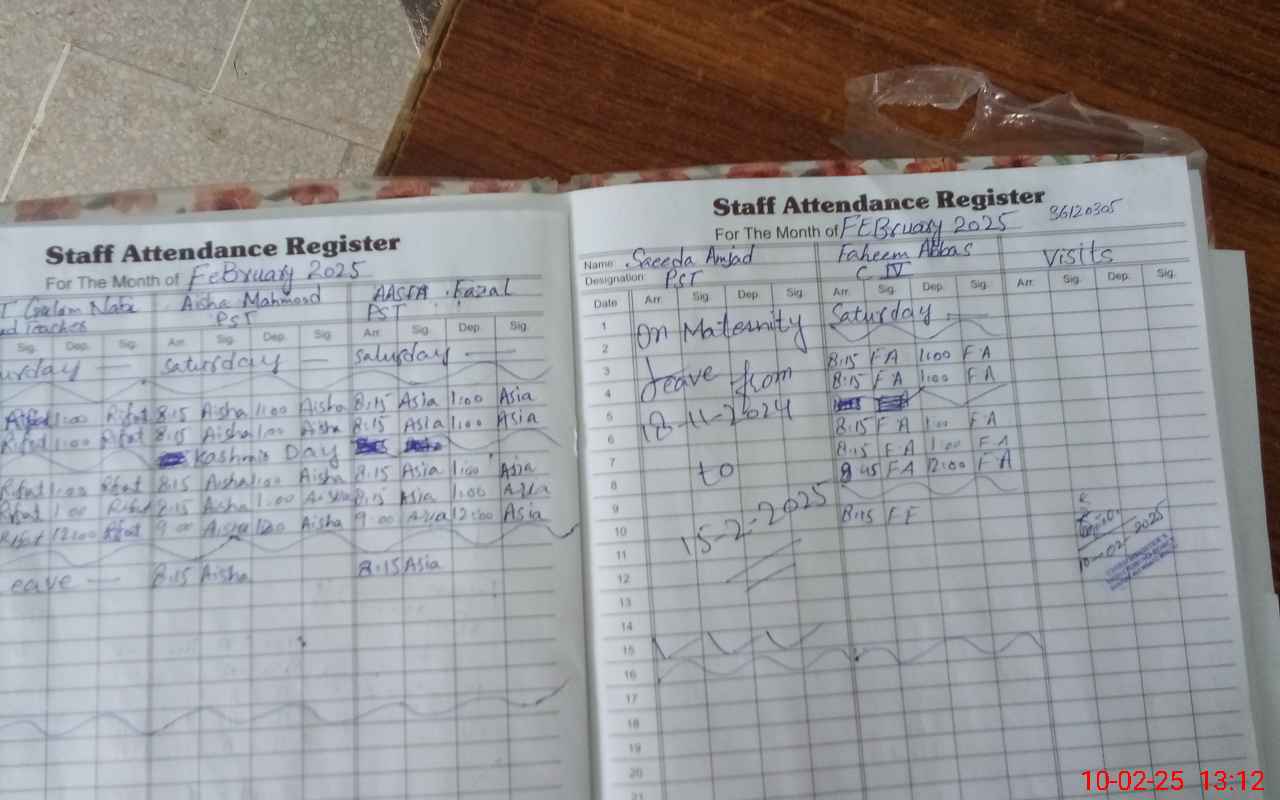 Staff Attendance Register
For The Month of February 2025
Gulam Nabi Aisha Mahmood AASIA Fazal
PST PST
Sig. Dep. Sig. Arr. Sig. Dep. Sig. Arr. Sig. Dep. Sig.
Saturday — Saturday —
1:00 Rifat 8:15 Aisha 1:00 Aisha 8:15 Asia 1:00 Asia
Rifat 1:00 Rifat 8:15 Aisha 1:00 Aisha 8:15 Asia 1:00 Asia
Kashmir Day
Rifat 1:00 Rifat 8:15 Aisha 1:00 Aisha 8:15 Asia 1:00 Asia
Rifat 1:00 Rifat 8:15 Aisha 1:00 Aisha 8:15 Asia 1:00 Asia
Rifat 12:00 Rifat 9:00 Aisha Aisha 9:00 Asia 12:00 Asia
eave — 8:15 Aisha 8:15 Asia
Staff Attendance Register
36120305
For The Month of FEBruary 2025
Name Saeeda Amjad Faheem Abbas Visits
Designation: PST C IV
Date Arr. Sig. Dep. Sig. Arr. Sig. Dep. Sig. Arr. Sig. Dep. Sig.
1 On Maternity Saturday —
2
3 Leave from 8:15 FA 1:00 FA
4 8:15 FA 1:00 FA
5 18-11-2024
6 8:15 FA 1:00 FA
7 to 8:15 FA 1:00 FA
8 8 45 FA 12:00 FA
9
10 15-2-2025 8:15 FF
11 10-02-2025
12
13
14
15
16
17
18
19
20
21
10-02-25 13:12